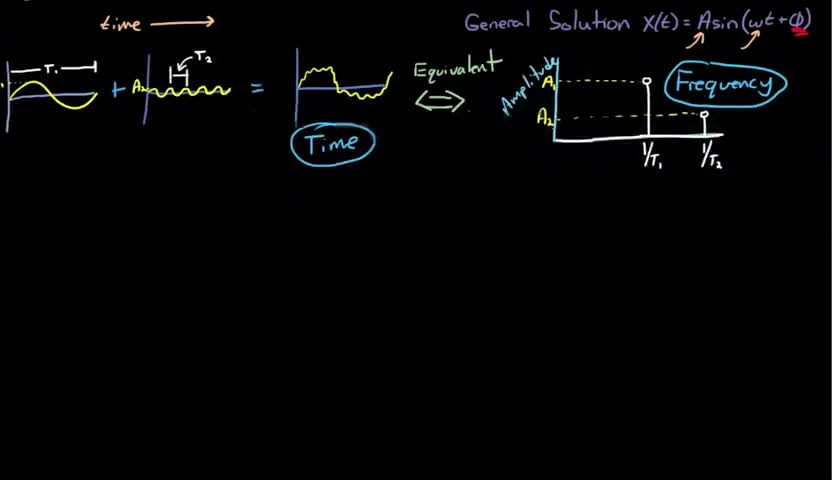 time
General Solution X(t) = Asin(ωt + ϕ)
T₁
T₂
+ A₂
=
Time
Equivalent
Amplitude
A₁
A₂
Frequency
1/T₁
1/T₂